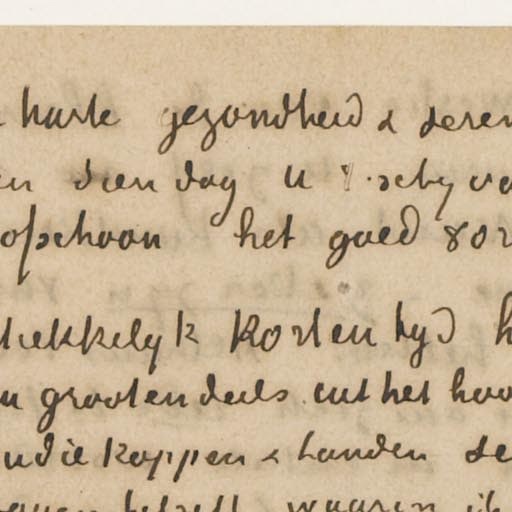 harte gezondheid & deren
en dien dag u schyva
ofschoon het goed vor
trekkelyk korten tyd h
n grootendeels uit het hoo
n die koppen & handen de
betreft waarin ik